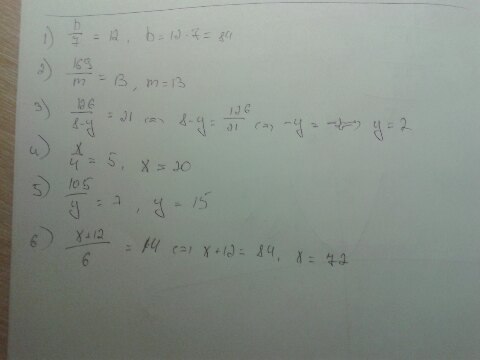 1) b/7 = 12, b = 12·7 = 84
2) 169/m = 13, m = 13
3) 126/(8-y) = 21 <=> 8-y = 126/21 <=> -y = -2 => y = 2
4) x/4 = 5, x = 20
5) 105/y = 7, y = 15
6) (x+12)/6 = 14 <=> x+12 = 84, x = 72